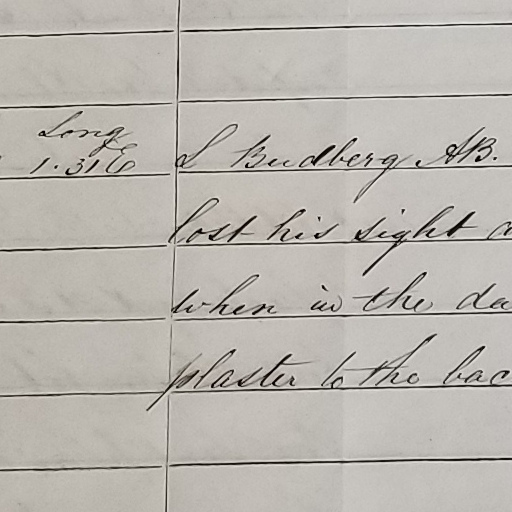 Long
1.31 E S Budberg AB.
lost his sight
when in the
plaster to the bac